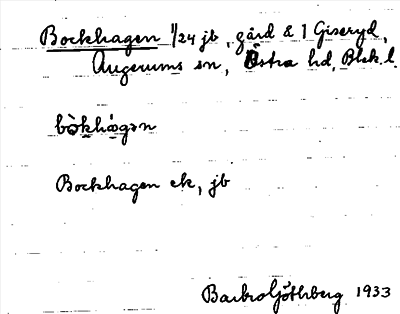 Bockhagen 1/24 jb, gård å 1 Giseryd,
Augerums sn, Östra hd, Blek. l.
bòkhágən
Bockhagen ek, jb
Barbro Göthberg 1933